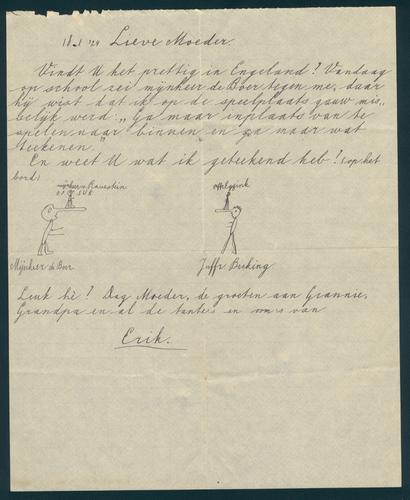 18-1 '29 Lieve Moeder.
Vindt U het prettig in Engeland? Vandaag
op school zei mijnheer de Boer tegen me, daar
hij wist dat ik op de speelplaats gauw mis-
selijk werd: "Ga maar inplaats van te
spelen naar binnen en ga maar wat
teekenen."
En weet U wat ik geteekend heb? (op het
bord)
mijnheer v. Ravestein
Mijnheer de Boer
Juffr. Beeking.
Leuk hè? Dag Moeder, de groeten aan Grannie,
Grandpa en al de tante's en oom's van
Erik.